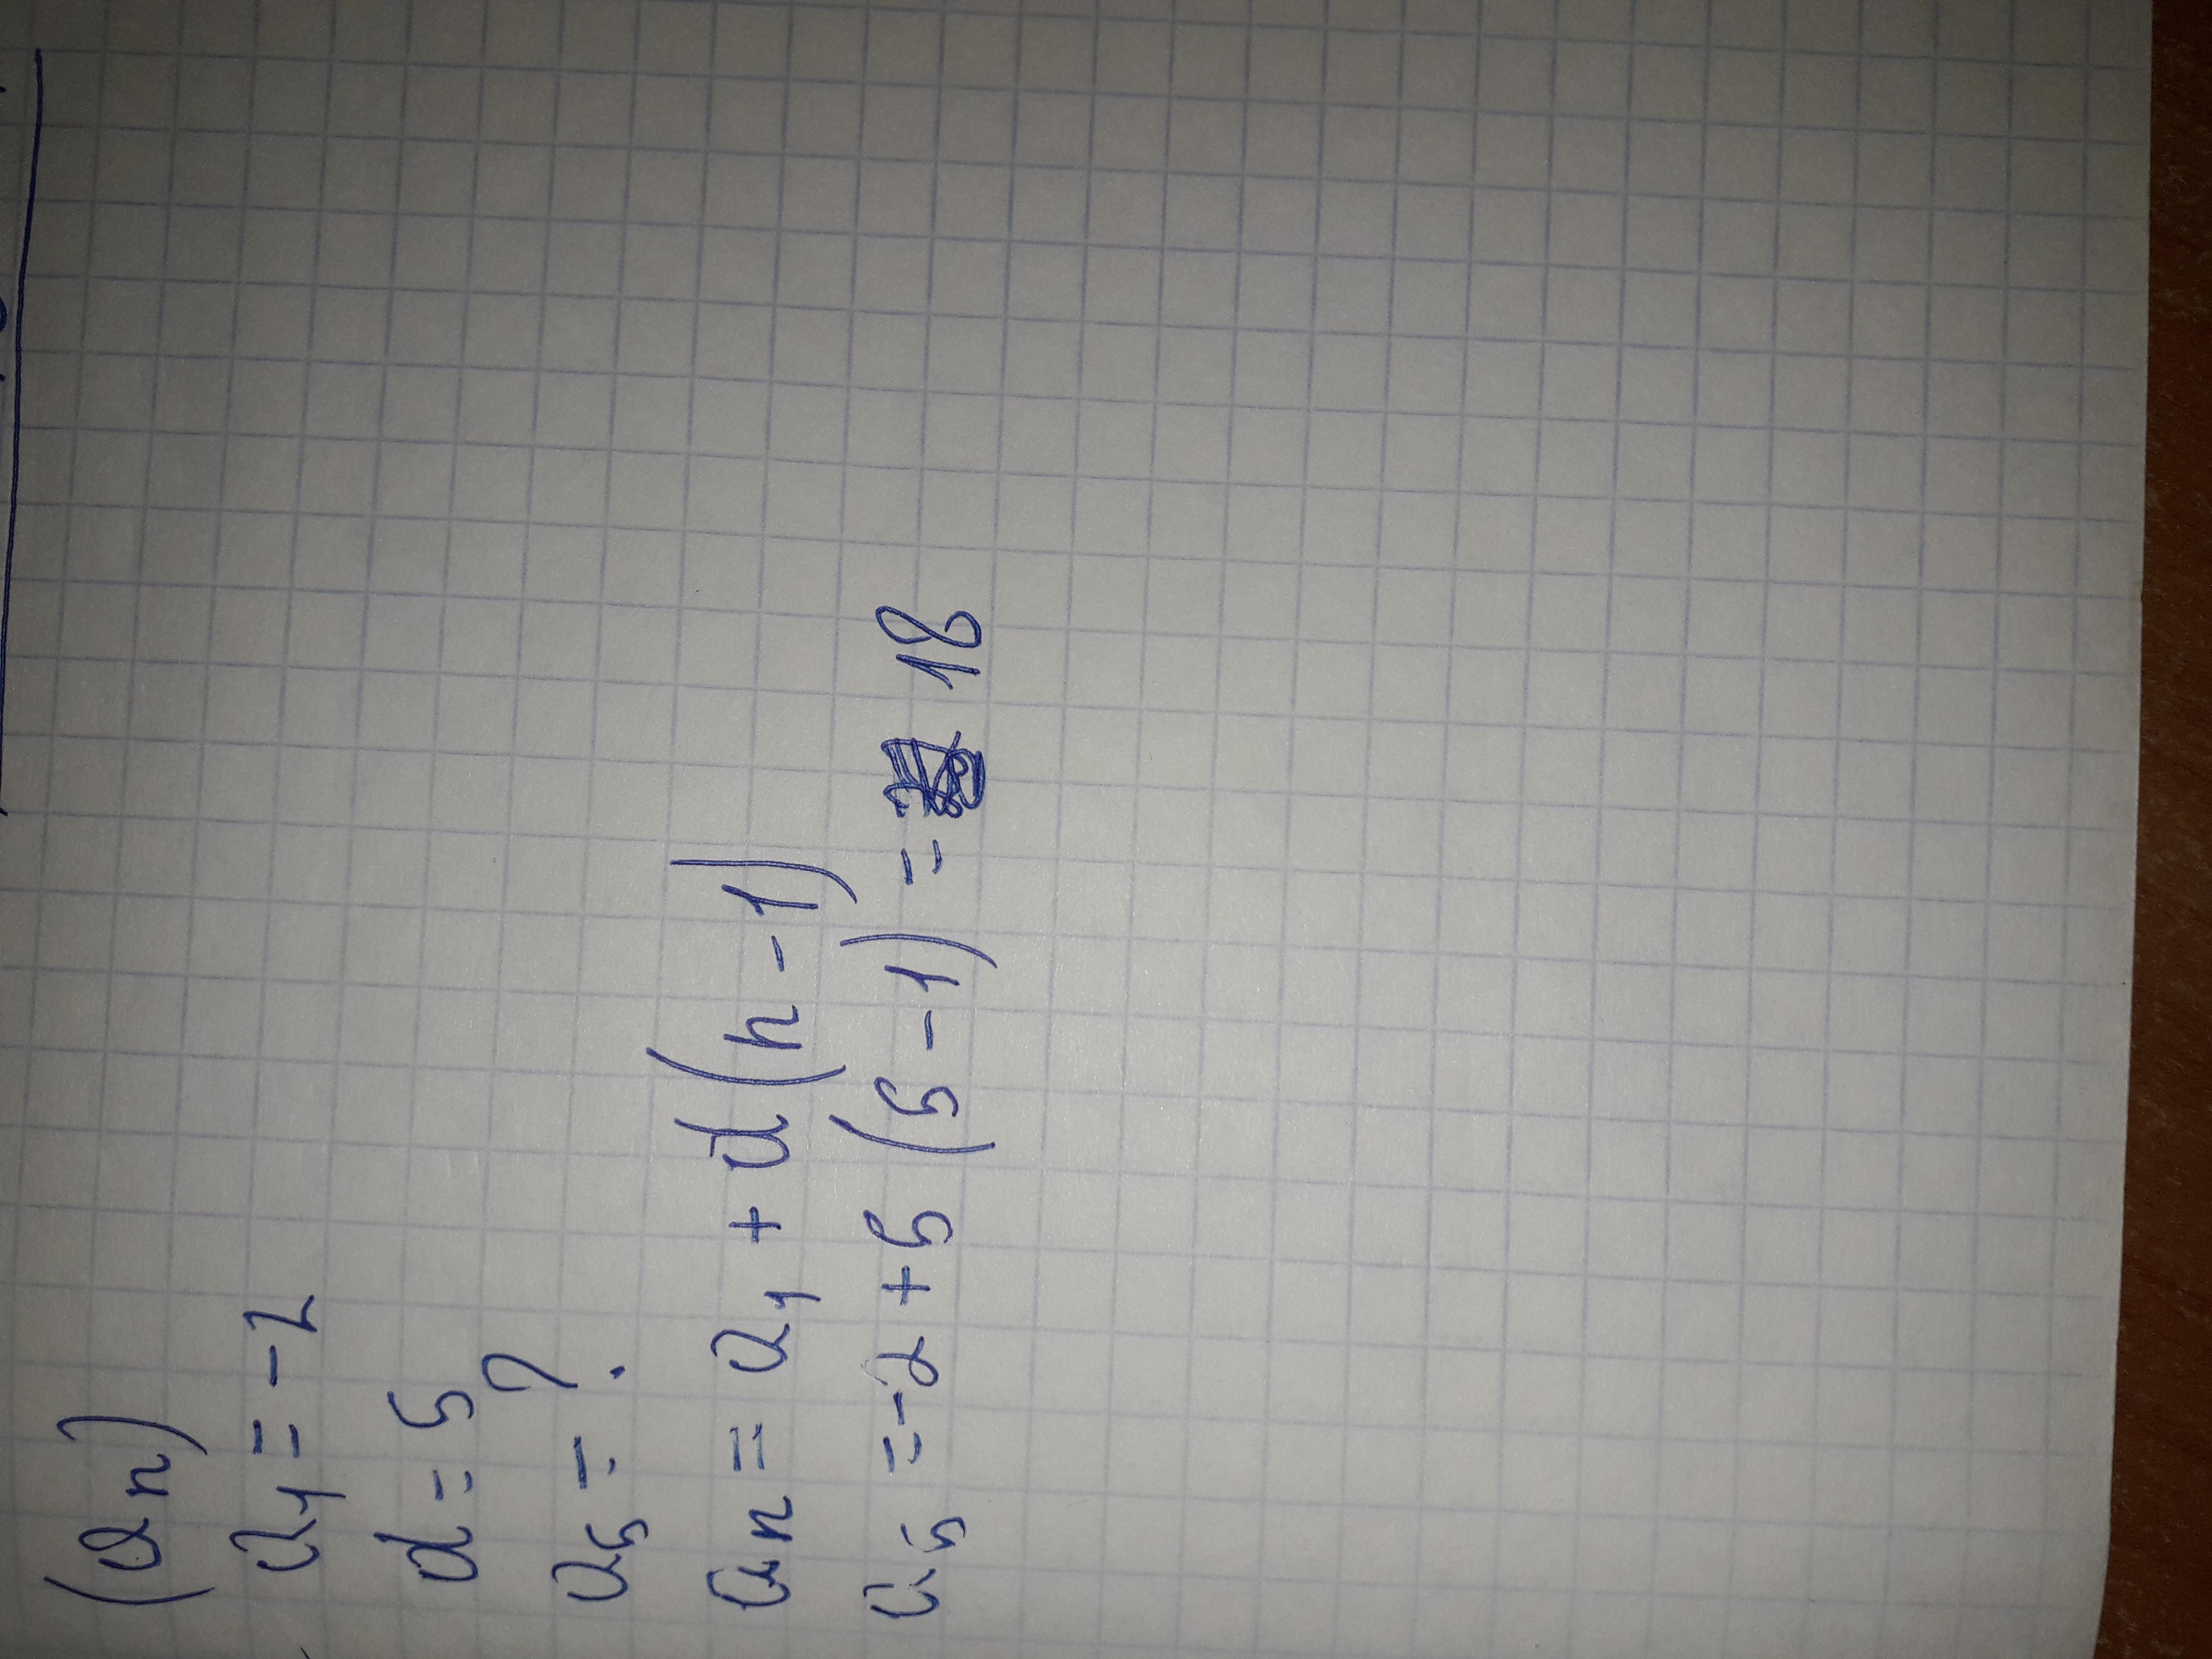 (an)
a1 = -2
d = 5
a5 = ?
an = a1 + d(n-1)
a5 = -2 + 5 (5-1) = 18